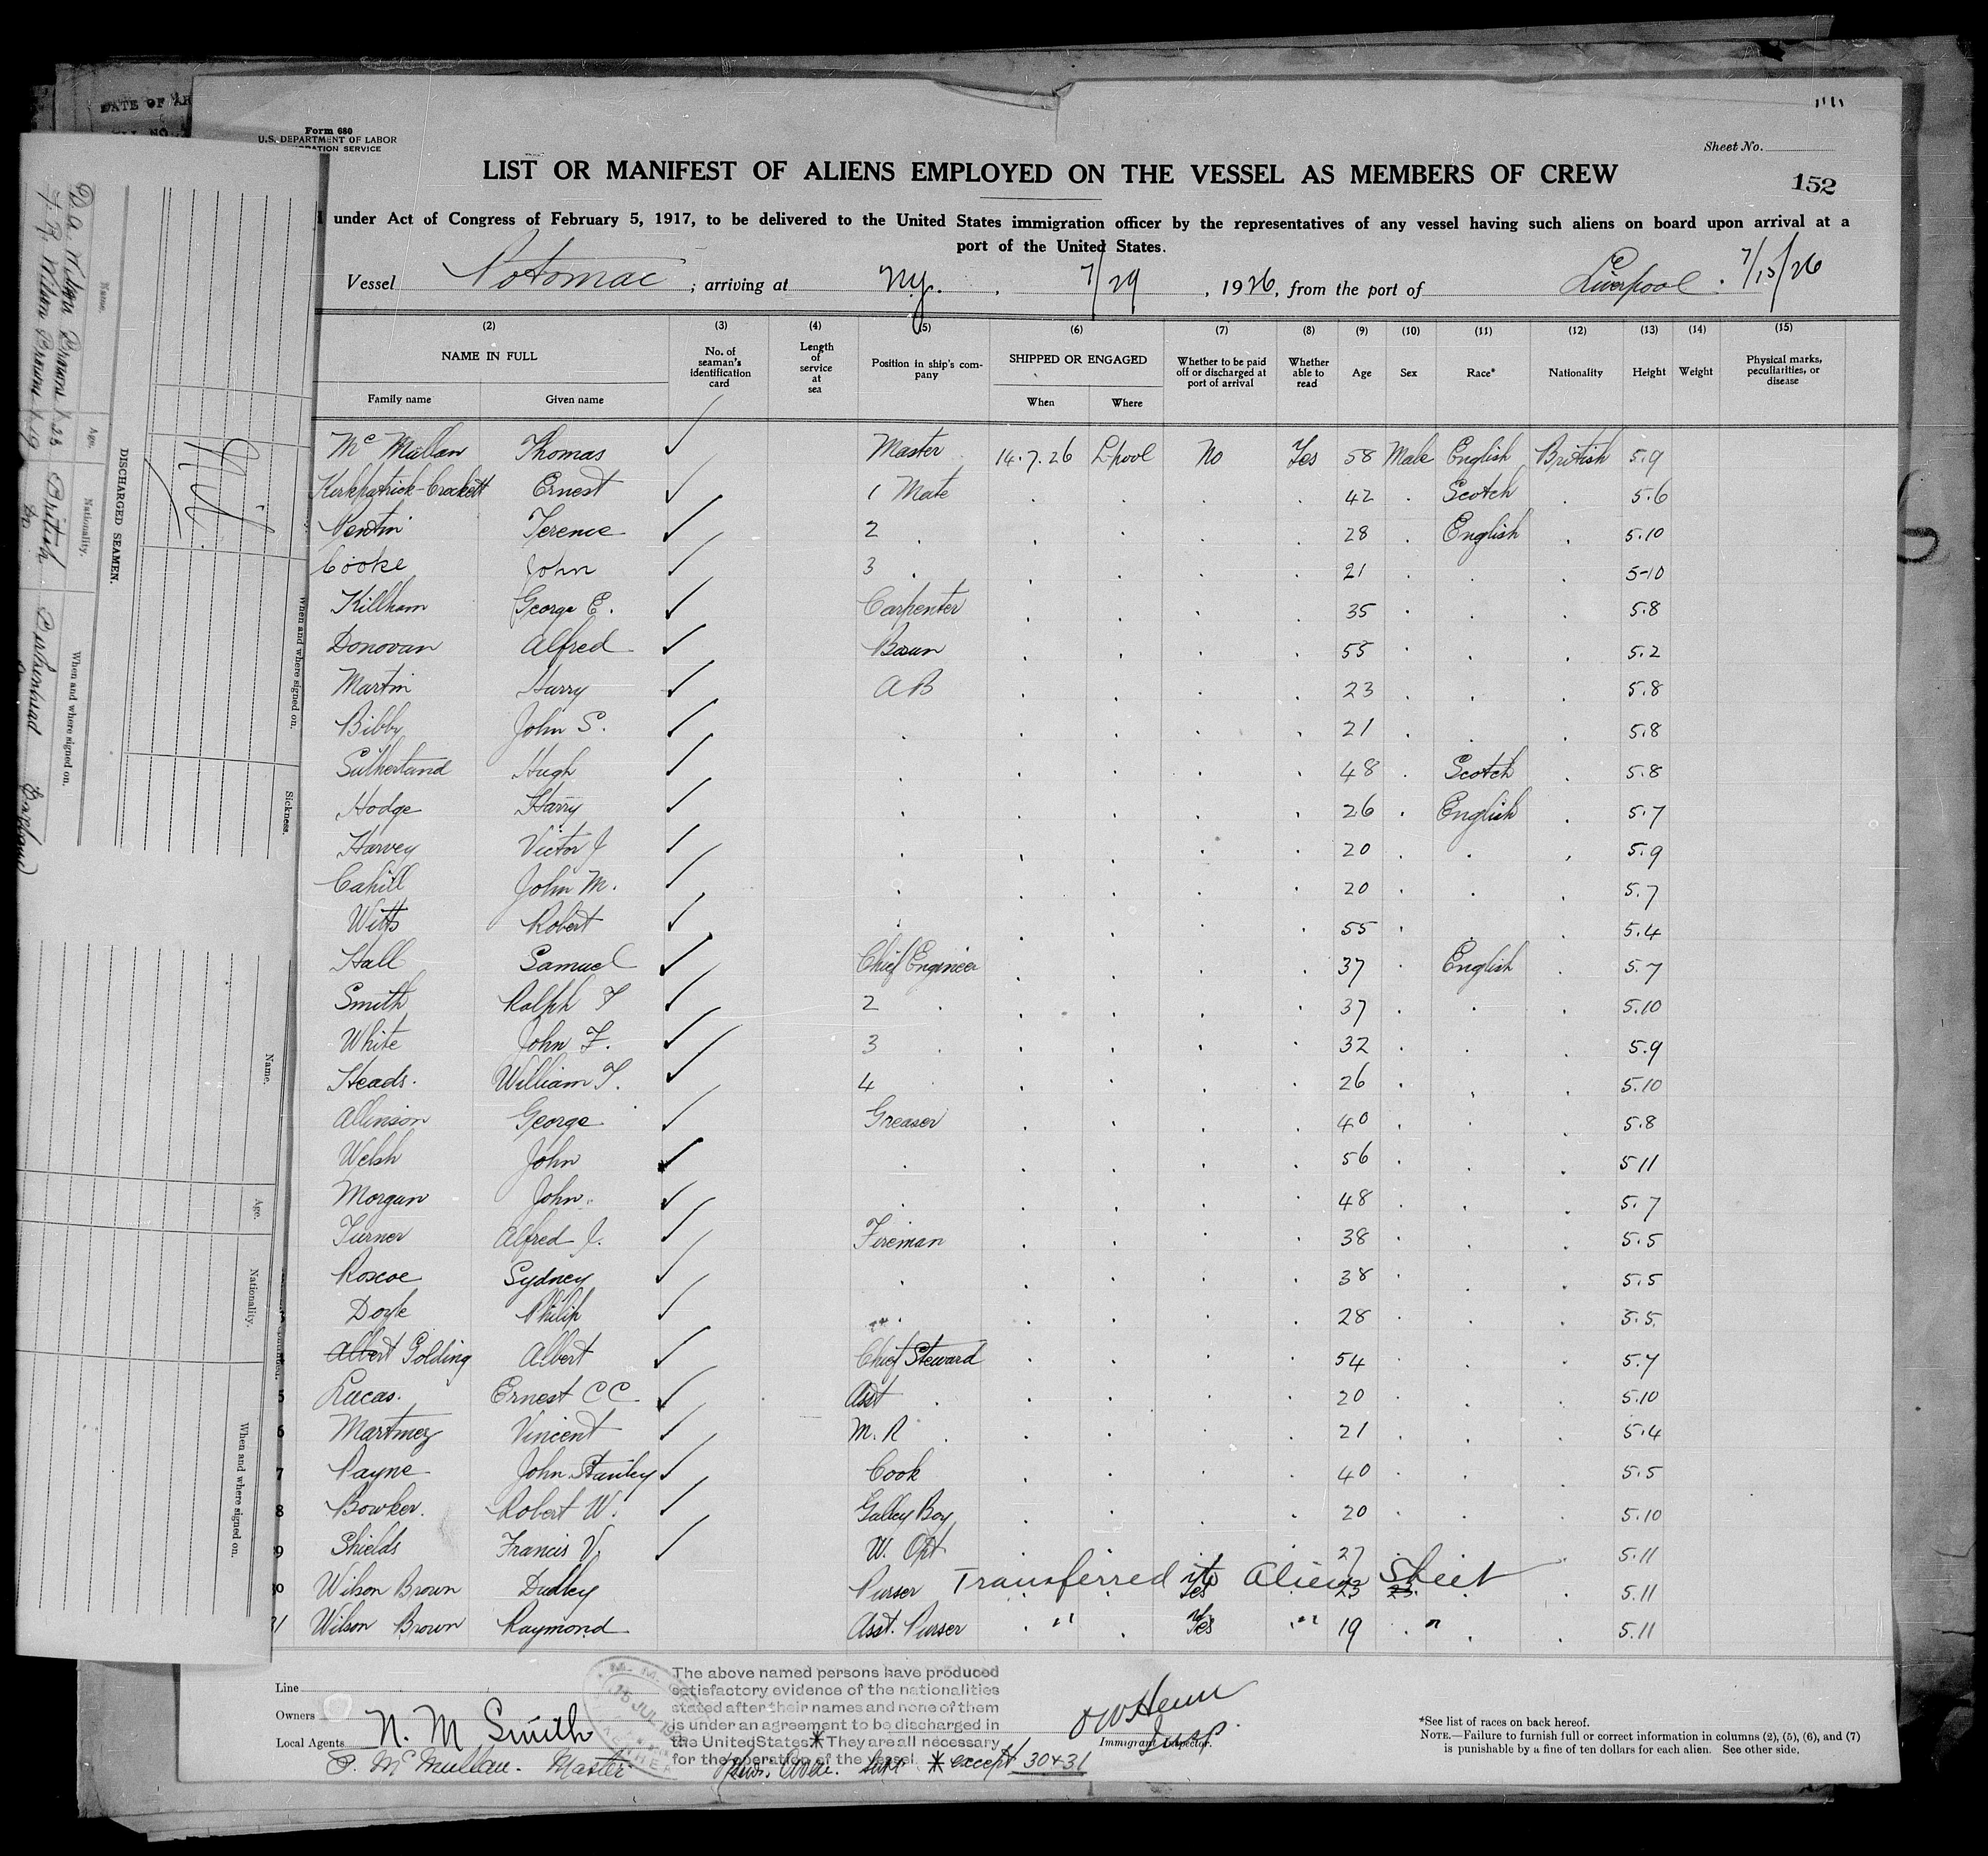 DATE OF AR
Form 680
U.S. DEPARTMENT OF LABOR
RATION SERVICE
Sheet No.
LIST OR MANIFEST OF ALIENS EMPLOYED ON THE VESSEL AS MEMBERS OF CREW
152
under Act of Congress of February 5, 1917, to be delivered to the United States immigration officer by the representatives of any vessel having such aliens on board upon arrival at a
port of the United States.
Vessel Potomac ; arriving at Ny. 7/29, 1926, from the port of Liverpool. 7/15/26
(2) (3) (4) (5) (6) (7) (8) (9) (10) (11) (12) (13) (14) (15)
NAME IN FULL No. of seaman's identification card Length of service at sea Position in ship's company SHIPPED OR ENGAGED Whether to be paid off or discharged at port of arrival Whether able to read Age Sex Race* Nationality Height Weight Physical marks, peculiarities, or disease
Family name Given name When Where
Mc Mullan Thomas ✓ Master 14.7.26 L'pool No Yes 58 Male English British 5.9
Kirkpatrick-Crockett Ernest ✓ 1 Mate . . . . 42 . Scotch . 5.6
Terence ✓ 2 . . . . . 28 . English . 5.10
Cooke John ✓ 3 . . . . . 21 . . . 5-10
Killham George E. ✓ Carpenter . . . . 35 . . . 5.8
Donovan Alfred ✓ Bosun . . . . 55 . . . 5.2
Martin Harry ✓ AB . . . . 23 . . . 5.8
Bibby John S. ✓ . . . . . 21 . . . 5.8
Sutherland Hugh ✓ . . . . . 48 . Scotch . 5.8
Hodge Harry ✓ . . . . . 26 . English . 5.7
Harvey Victor J ✓ . . . . . 20 . . . 5.9
Cahill John M. ✓ . . . . . 20 . . . 5.7
Witts Robert ✓ . . . . . 55 . . . 5.4
Hall Samuel ✓ Chief Engineer . . . . 37 . English . 5.7
Smith Ralph T ✓ 2 . . . . . 37 . . . 5.10
White John F. ✓ 3 . . . . . 32 . . . 5.9
Heads. William T. ✓ 4 . . . . . 26 . . . 5.10
Allinson George ✓ Greaser . . . . 40 . . . 5.8
Welsh John ✓ . . . . . 56 . . . 5 11
Morgan John ✓ . . . . . 48 . . . 5.7
Turner Alfred J. ✓ Fireman . . . . 38 . . . 5.5
Roscoe Sydney ✓ . . . . . 38 . . . 5.5
Doyle Philip ✓ . . . . . 28 . . . 5.5.
Albert Golding Albert ✓ Chief Steward . . . . 54 . . . 5.7
5 Lucas. Ernest CC ✓ Asst . . . . . 20 . . . 5.10
6 Martinez Vincent ✓ M.R . . . . . 21 . . . 5.4
7 Payne John Stanley ✓ Cook . . . . 40 . . . 5.5
8 Bowker. Robert W. ✓ Galley Boy . . . . 20 . . . 5.10
9 Shields Francis V. ✓ W. Opt . . . . 27 . . . 5.11
0 Wilson Brown Dudley Purser Transferred to Alien Sheet Yes 23 23. 5.11
31 Wilson Brown Raymond Asst. Purser . " . Yes " 19 . " . . 5.11
Line
Owners
Local Agents N. M Smith
Mc Mullan. Master
The above named persons have produced
satisfactory evidence of the nationalities
stated after their names and none of them
is under an agreement to be discharged in
the United States.* They are all necessary
for the operation of the vessel. * except 30&31
15 JUL 192
Immigrant Inspector.
Insp.
*See list of races on back hereof.
NOTE.—Failure to furnish full or correct information in columns (2), (5), (6), and (7)
is punishable by a fine of ten dollars for each alien. See other side.
DISCHARGED SEAMEN.
Name. Age. Nationality. When and where signed on.
D.A. Wilson Brown 23 British Birkenhead England
Wilson Brown 19 Do
Nil.
When and where signed on. Sickness.
Name. Age. Nationality. When and where signed on.